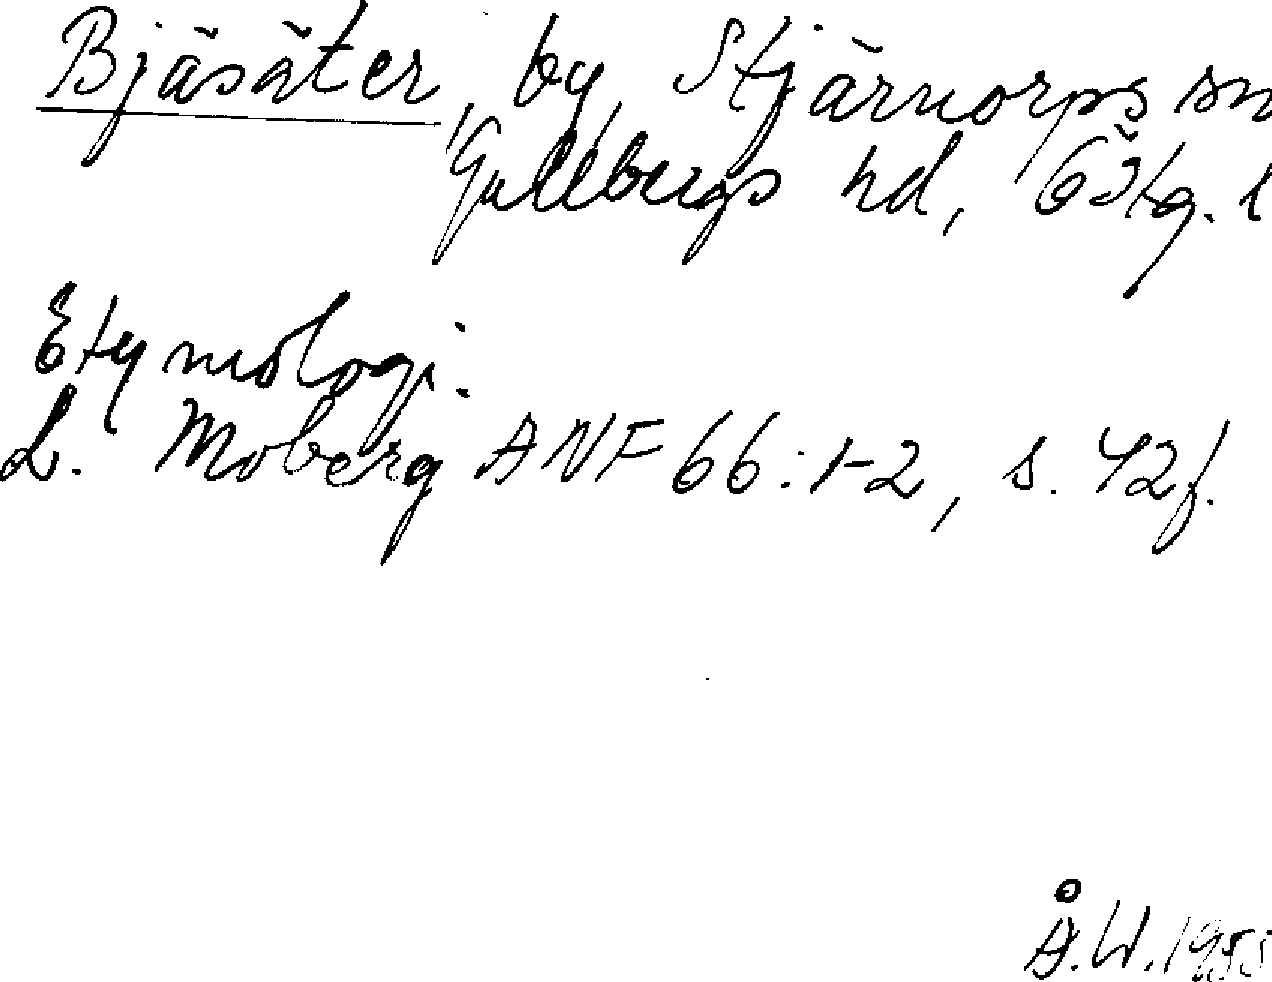 Bjäsäter, by, Stjärnorps sn
Gullbergs hd, Östg. l
Etymologi:
L. Moberg ANF 66:1-2, s. 42f.
Å.W. 1955